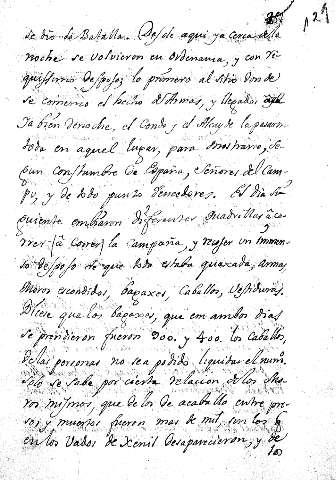 129
se dió la Batalla. Desde aqui ya cerca de la
noche se volvieron en ordenanza, y con ri
quissimo despojo lo primero al sitio donde
se comenzo el hecho de Armas, y llegados
ya bien denoche, el Conde y el Alcayde la pasaron
toda en aquel lugar, para mostrarse, se
gun constumbre de España, Señores del Cam
po, y de todo punto Vencedores. El dia si
guiente embiaron diferentes quadrillas à co
rrer (à correr) la campaña, y recojer un inmen
so despojo de que toda estaba quaxada, Armas,
Moros escondidos, bagaxes, Caballos, vestiduras.
Dicese que los bagaxes, que en ambos dias
se prendieron fueron 900. y 400. los Caballos,
de las personas no se a podido liquidar el num.o
solo se sabe por cierta relacion de los Mo
ros mismos, que de los de acaballo entre pre
sos y muertos fueron mas de mil, sin los q
en los Vados de Xenil desaparecieron, y de
los